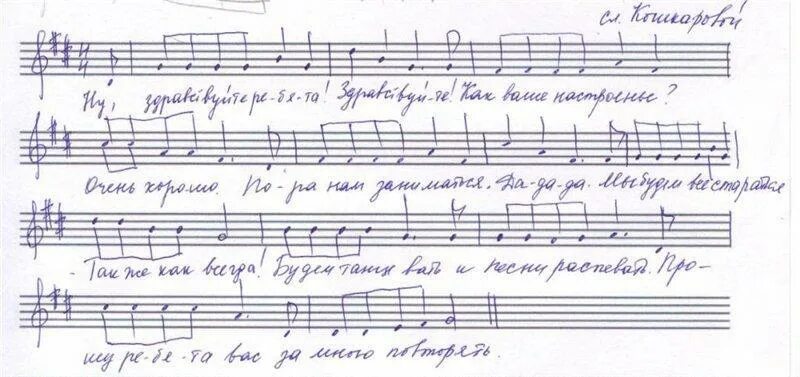 сл. Кошкаровой
4/4
Ну, здравствуйте ре-бя-та! Здравствуй-те! Как ваше настроенье?
Очень хорошо. По-ра нам заниматься. Да-да-да. Мы будем все стараться
- Так же как всегда! Будем танцевать и песни распевать. Про-
шу ре-бя-та вас за мною повторять.